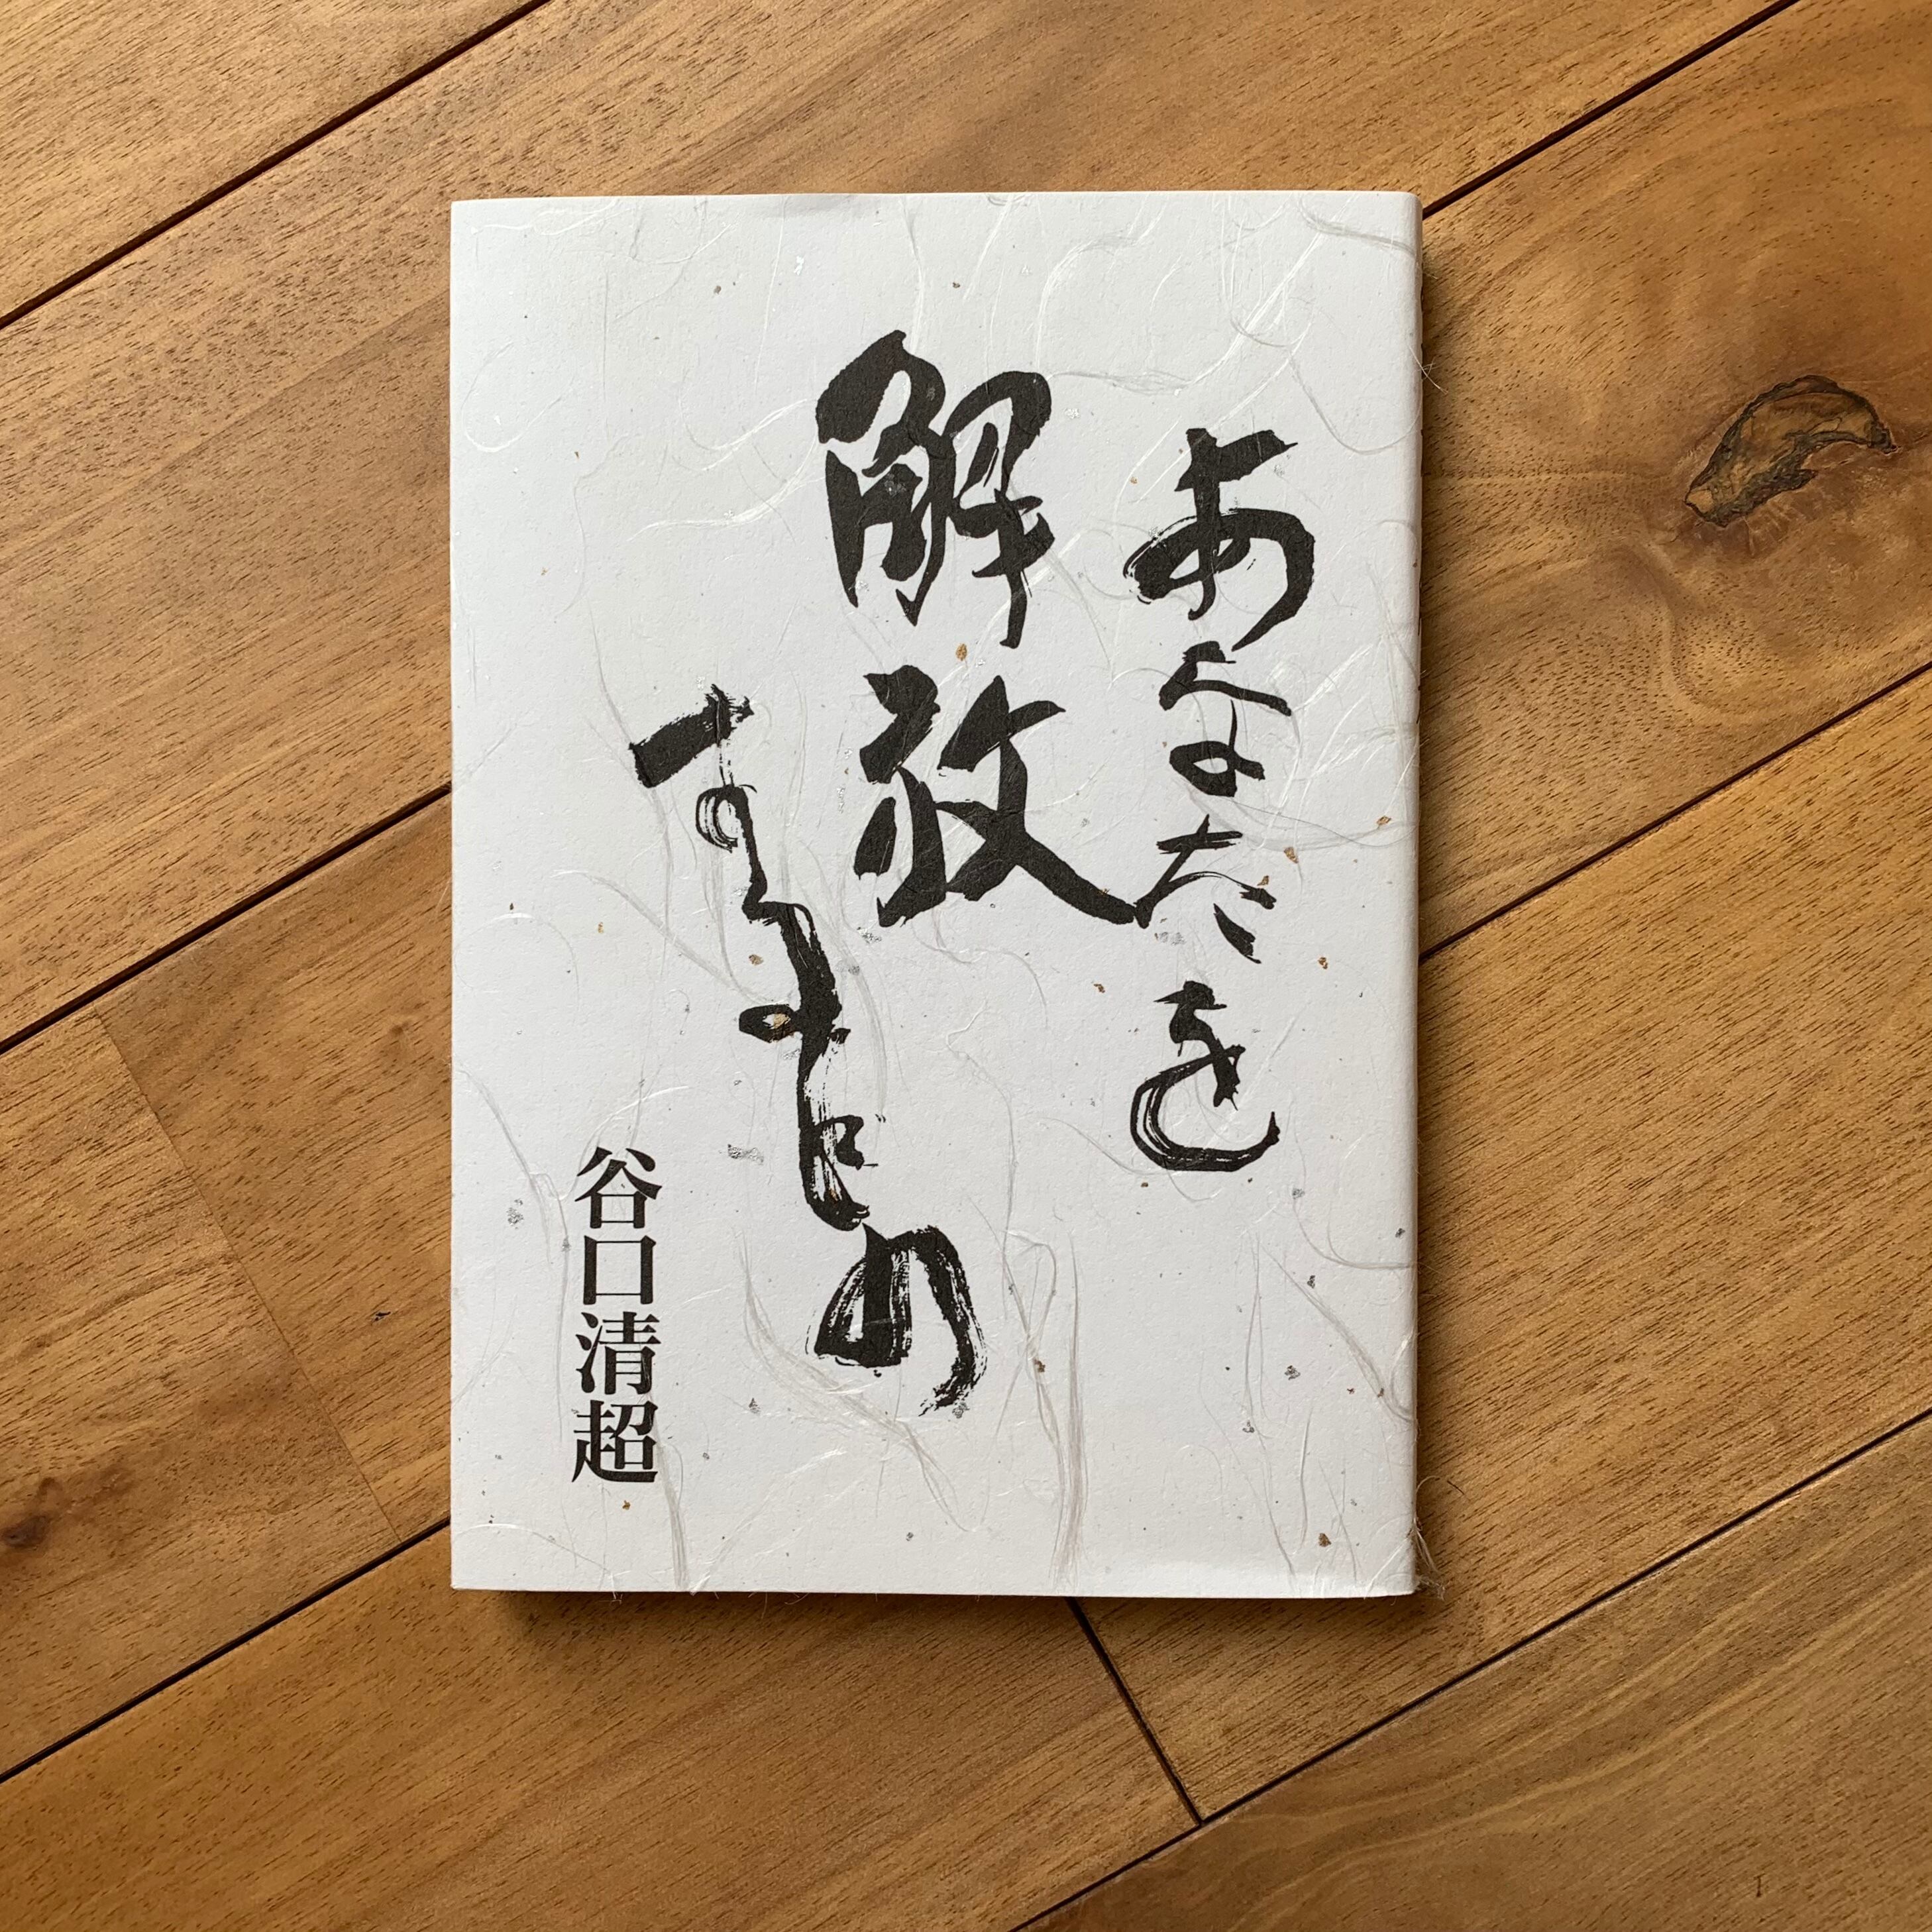 あなたを
解放
するもの
谷口清超